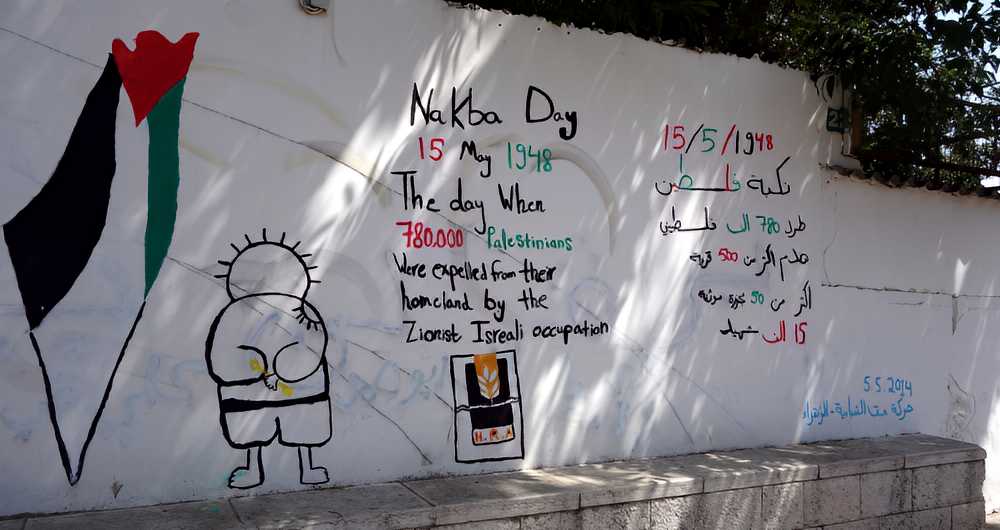 Nakba Day
15 May 1948
The day When
780,000 Palestinians
Were expelled from their
homeland by the
Zionist Isreali occupation
H.R.A
15/5/1948
نكبة فلسطين
طرد 780 الف فلسطيني
هدم اكثر من 500 قرية
اكثر من 50 مجزرة موثقة
15 الف شهيد
5.5.2014
حركة الشبابية -